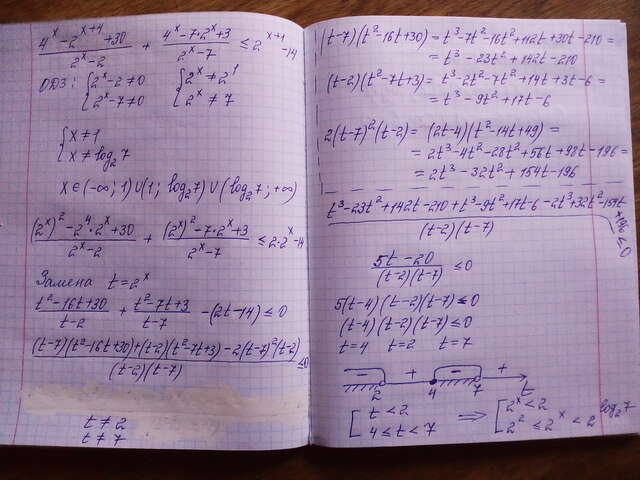 (4^x - 2^(x+4) + 30)/(2^x - 2) + (4^x - 7·2^x + 3)/(2^x - 7) ≤ 2^(x+1) - 14
ОДЗ: { 2^x - 2 ≠ 0 { 2^x ≠ 2^1
{ 2^x - 7 ≠ 0 { 2^x ≠ 7
{ x ≠ 1
{ x ≠ log₂7
x ∈ (-∞; 1) ∪ (1; log₂7) ∪ (log₂7; +∞)
((2^x)² - 2⁴·2^x + 30)/(2^x - 2) + ((2^x)² - 7·2^x + 3)/(2^x - 7) ≤ 2·2^x - 14
Замена t = 2^x
(t² - 16t + 30)/(t - 2) + (t² - 7t + 3)/(t - 7) - (2t - 14) ≤ 0
((t-7)(t² - 16t + 30) + (t-2)(t² - 7t + 3) - 2(t-7)²(t-2))/((t-2)(t-7)) ≤ 0
t ≠ 2
t ≠ 7
(t-7)(t² - 16t + 30) = t³ - 7t² - 16t² + 112t + 30t - 210 =
= t³ - 23t² + 142t - 210
(t-2)(t² - 7t + 3) = t³ - 2t² - 7t² + 14t + 3t - 6 =
= t³ - 9t² + 17t - 6
2(t-7)²(t-2) = (2t-4)(t² - 14t + 49) =
= 2t³ - 4t² - 28t² + 56t + 98t - 196 =
= 2t³ - 32t² + 154t - 196
(t³ - 23t² + 142t - 210 + t³ - 9t² + 17t - 6 - 2t³ + 32t² - 154t + 196)/((t-2)(t-7)) ≤ 0
(5t - 20)/((t-2)(t-7)) ≤ 0
5(t-4)(t-2)(t-7) ≤ 0
(t-4)(t-2)(t-7) ≤ 0
t = 4 t = 2 t = 7
- + - +
2 4 7 t
[ t < 2 ⟹ [ 2^x < 2
[ 4 ≤ t < 7 [ 2² ≤ 2^x < 2^(log₂7)